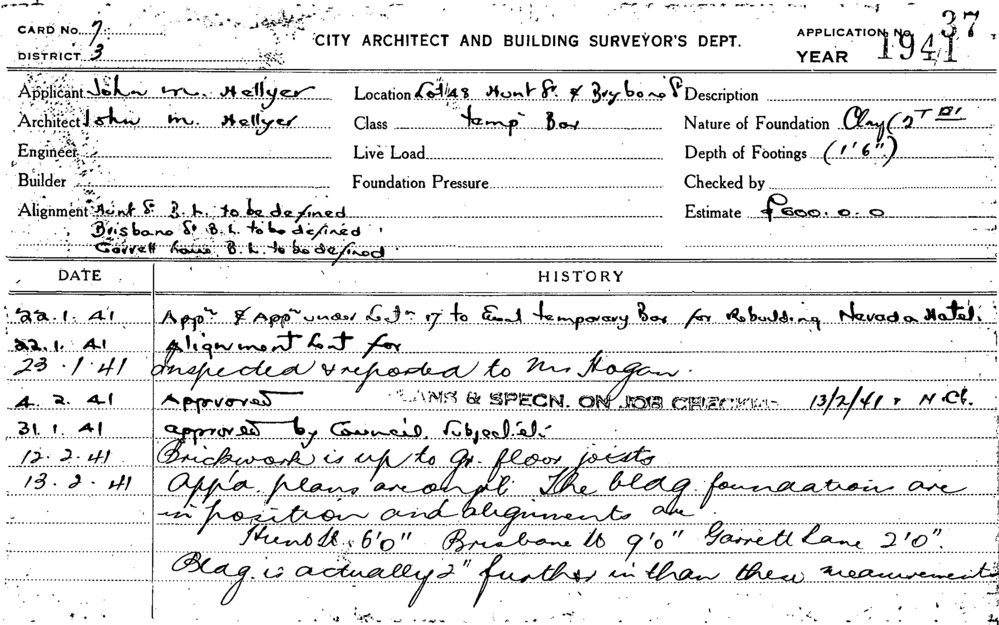 CARD No. 7
DISTRICT 3
CITY ARCHITECT AND BUILDING SURVEYOR'S DEPT.
APPLICATION No. 37
YEAR 1941
Applicant John M. Hellyer
Location Lot 48 Hunt St. & Brisbane St
Description
Architect John M. Hellyer
Class temp Bar
Nature of Foundation Clay (2T
Engineer
Live Load
Depth of Footings (1'6")
Builder
Foundation Pressure
Checked by
Alignment Hunt St B.L. to be defined
Estimate £600.0.0
Brisbane St B.L. to be defined
Garrett Lane B.L. to be defined
DATE HISTORY
22.1.41 Appn & Appn under Sectn 17 to Erect temporary Bar for Rebuilding Nevada Hotel.
22.1.41 Alignment Sent for
23.1.41 Inspected & reported to Mr Hogan.
4.2.41 Approved PLANS & SPECN. ON JOB CHECKED 13/2/41
31.1.41 approved by Council. Subject
12.2.41 Brickwork is up to Gr. floor joists
13.2.41 App'd. plans are on job The bldg. foundations are
in position and alignments are
Hunt St 6'0" Brisbane St 9'0" Garrett Lane 2'0".
Bldg. is actually 2" further in than these measurements